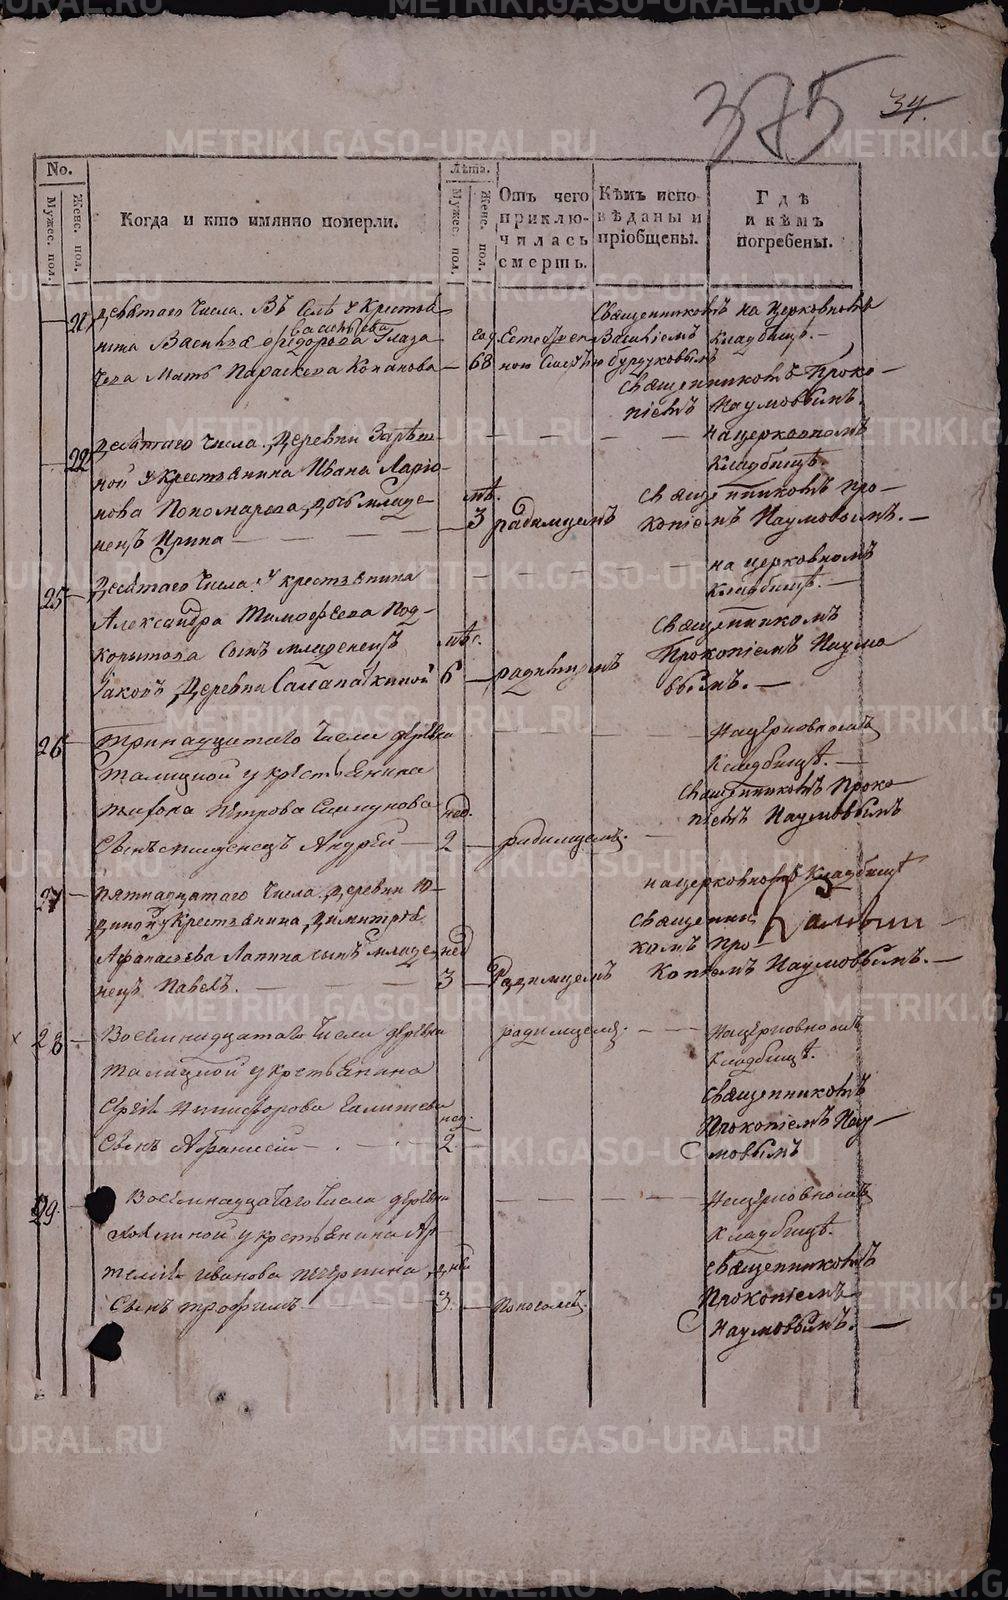 375 34.
No.
Мужес. пол.
Женс. пол.
Когда и кто имянно померли.
Лѣта.
Мужес. пол.
Женс. пол.
Отъ чего приключилась смерть.
Кѣмъ исповѣданы и пріобщены.
Гдѣ и кѣмъ погребены.
21 девятаго числа. Въ Селѣ у Крестья
нина Василья Федорова Глаза
Васильева
чева Мать Параскева
год 68
Естествен
ною
Священникомъ
Василіемъ
бурдуковымъ
на Церковномъ
Кладбищѣ. —
Священникомъ Проко —
піемъ Наумовымъ.
22 Десятаго числа. Деревни
ной у Крестьянина Ивана Ларіо
нова Пономарева, дочь младе
нецъ Ирина —
мѣ. 3
радимцемъ
на церковномъ
Кладбищѣ.
священникомъ Про —
копіемъ Наумовымъ. —
25 Десятаго Числа. У крестьянина
Александра Тимофеева Под-
корытова Сынъ младенецъ
Іаковъ, Деревни
мѣс. 6
радимцемъ
на церковномъ
Кладбищѣ. —
Священникомъ
Прокопіемъ Наумо
вымъ. —
26 Тринадцатаго Числа деревни
Талицкой у крестьянина
Петрова
Сынъ младенецъ Андрей —
нед. 2
радимцемъ. —
На церковномъ
Кладбищѣ. —
Священникомъ Проко
піемъ Наумовымъ
27 пятнадцатаго Числа. Деревни Ю-
диной у Крестьянина Димитрія
Афанасьева Лапина сынъ младе
нецъ Павелъ. —
нед 3
Радимцемъ
на церковномъ Кладбищѣ
священни
комъ Про —
копіемъ Наумовымъ. —
х 28 Восемнадцатаго Числа деревни
Талицкой у крестьянина
Сергія Никифорова Галишева
Сынъ Афанасій —
нед. 2
радимцемъ. —
На церковномъ
Кладбищѣ.
Священникомъ
Прокопіемъ Нау —
мовымъ
29. Восемнадцатаго Числа деревни
у крестьянина Ар
темія Иванова
Сынъ Трофимъ —
дней 3.
Поносомъ.
На церковномъ
Кладбищѣ.
Священникомъ
Прокопіемъ
Наумовымъ. —
METRIKI.GASO-URAL.RU